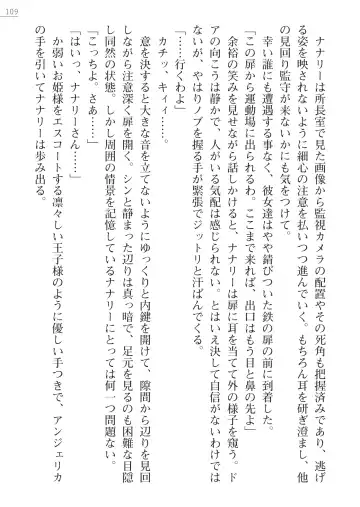 109
ナナリーは所長室で見た画像から監視カメラの配置やその死角も把握済みであり、逃げ
る姿を映されないように細心の注意を払いつつ進んでいく。もちろん耳を研ぎ澄まし、他
の見回り監守が来ないかにも気をつけて。
幸い誰にも遭遇する事なく、彼女達はやや錆びついた鉄の扉の前に到着した。
「この扉から運動場に出られるわ。ここまで来れば、出口はもう目と鼻の先よ」
余裕の笑みを見せながら話しかけると、ナナリーは扉に耳を当てて外の様子を窺う。ド
アの向こうは静かで、人がいる気配は感じられない。とはいえ決して自信がないわけでは
ないが、やはりノブを握る手が緊張でジットリと汗ばんでくる。
「……行くわよ」
カチッ、キィィ……。
意を決すると大きな音を立てないようにゆっくりと内鍵を開けて、隙間から辺りを見回
しながら注意深く扉を開く。シンと静まった辺りは真っ暗で、足元を見るのも困難な目隠
し同然の状態。しかし周囲の情景を記憶しているナナリーにとっては何一つ問題ない。
「こっちよ。さあ……」
「はい、ナナリーさん……」
か弱いお姫様をエスコートする凛々しい王子様のように優しい手つきで、アンジェリカ
の手を引いてナナリーは歩み出る。